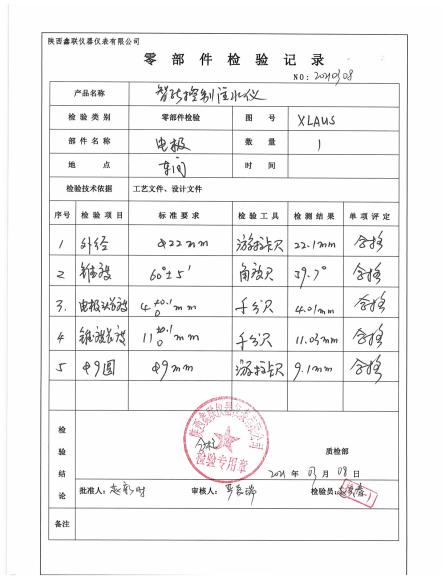 陕西鑫联仪器仪表有限公司
零部件检验记录
NO: 20210308
产品名称 智能控制注水仪
检验类别 零部件检验 图号 XLAUS
部件名称 电极 数量 1
地点 车间 时间
检验技术依据 工艺文件、设计文件
序号 检验项目 标准要求 检验工具 检测结果 单项评定
1 外径 Φ22mm 游标卡尺 22.1mm 合格
2 锥度 60°±5′ 角度尺 59.7° 合格
3. 电极头长度 4 +0.1 0 mm 千分尺 4.01mm 合格
4 锥度长度 11 +0.1 0 mm 千分尺 11.03mm 合格
5 Φ9圆 Φ9mm 游标卡尺 9.1mm 合格
检验结论
合格
陕西鑫联仪器仪表有限公司
检验专用章
质检部
2021年 03月 08日
批准人: 审核人: 检验员:
备注